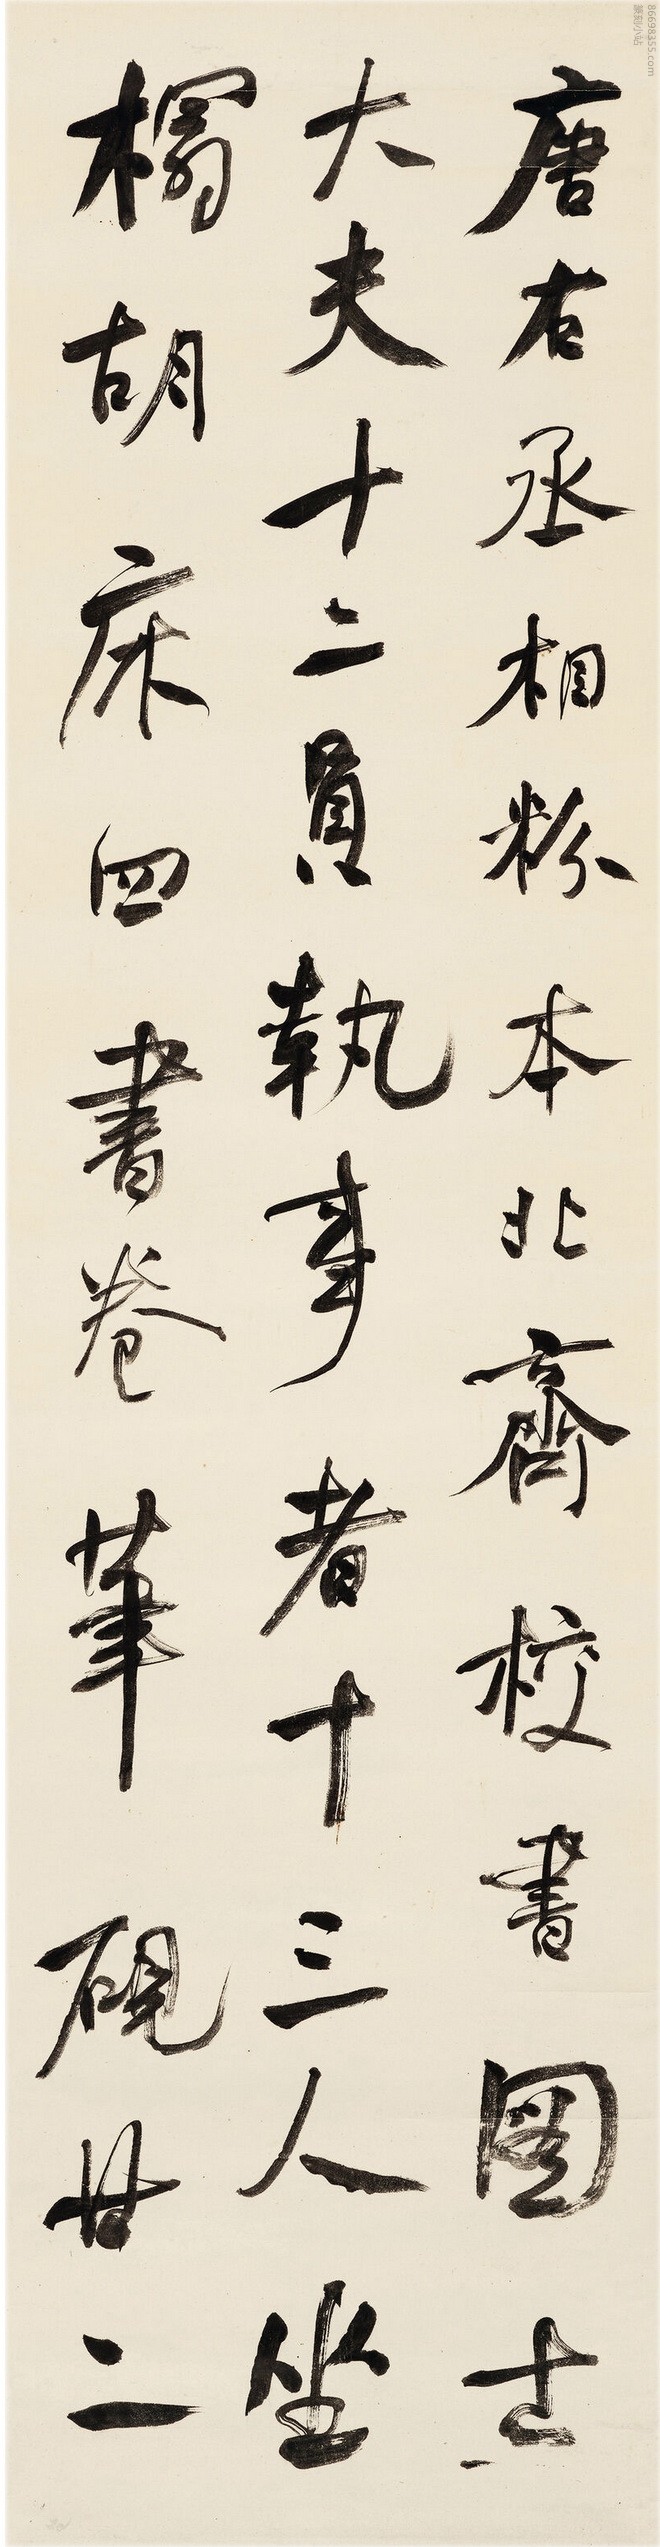 唐右丞相粉本北齊校書圖士
大夫十二員執事者十三人坐
榻胡床四書卷筆硯廿二
86698355.com
篆刻小站